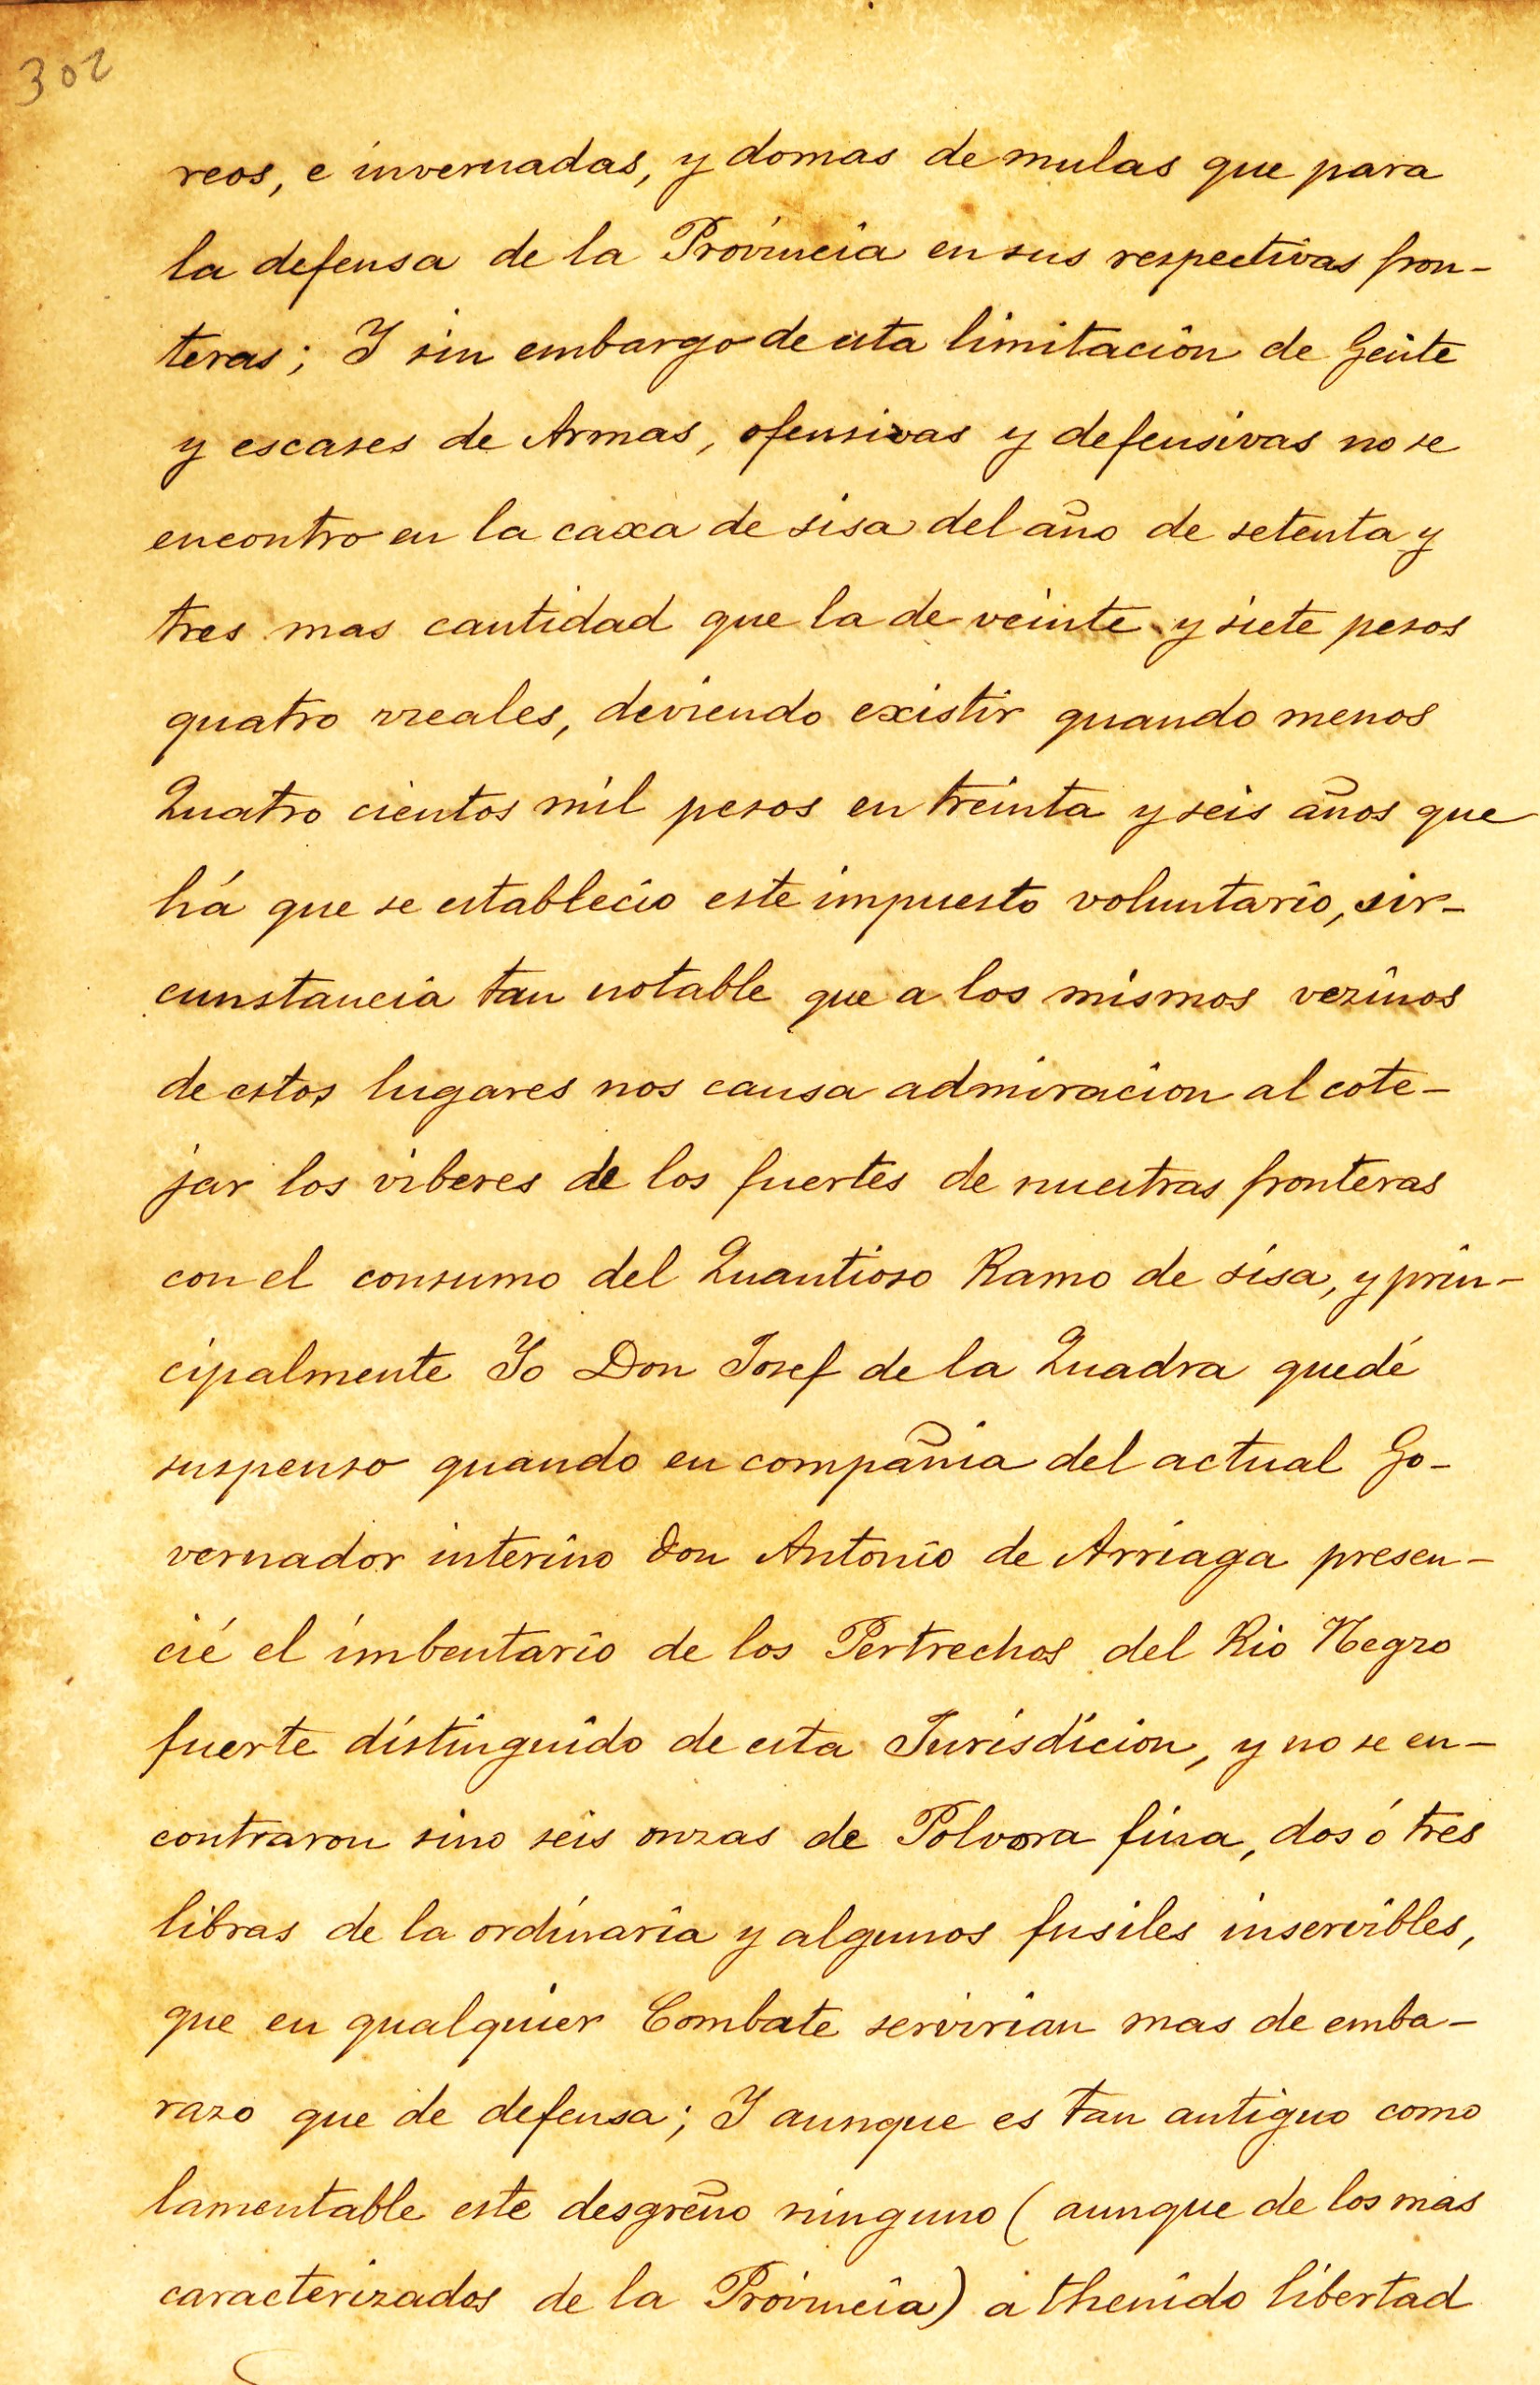 302
reos, e invernadas, y domas de mulas que para
la defensa de la Provincia en sus respectivas fron-
teras; Y sin embargo de esta limitacion de Gente
y escases de Armas, ofensivas y defensivas no se
encontro en la caxa de sisa del año de setenta y
tres mas cantidad que la de veinte y siete pesos
quatro rreales, deviendo existir quando menos
Quatro cientos mil pesos en treinta y seis años que
há que se establecio este impuesto voluntario, sir-
cunstancia tan notable que a los mismos vezinos
de estos lugares nos causa admiracion al cote-
jar los viberes de los fuertes de nuestras fronteras
con el consumo del Quantioso Ramo de sisa, y prin-
cipalmente Yo Don Josef de la Quadra quedé
suspenso quando en compañia del actual Go-
vernador interino Don Antonio de Arriaga presen-
cié el imbentario de los Pertrechos del Rio Negro
fuerte distinguido de esta Jurisdicion, y no se en-
contraron sino seis onzas de Polvora fina, dos ó tres
libras de la ordinaria y algunos fusiles inservibles,
que en qualquier Combate servirian mas de emba-
razo que de defensa; Y aunque es tan antiguo como
lamentable este desgreño ninguno (aunque de los mas
caracterizados de la Provincia) a thenido libertad